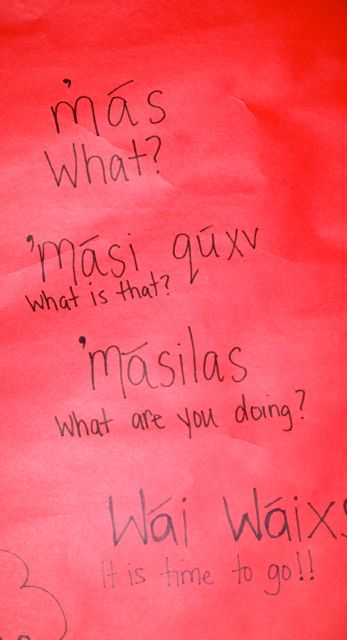 'más
What?
'mási qúxv
What is that?
'másilas
What are you doing?
Wái Wáixs
It is time to go!!